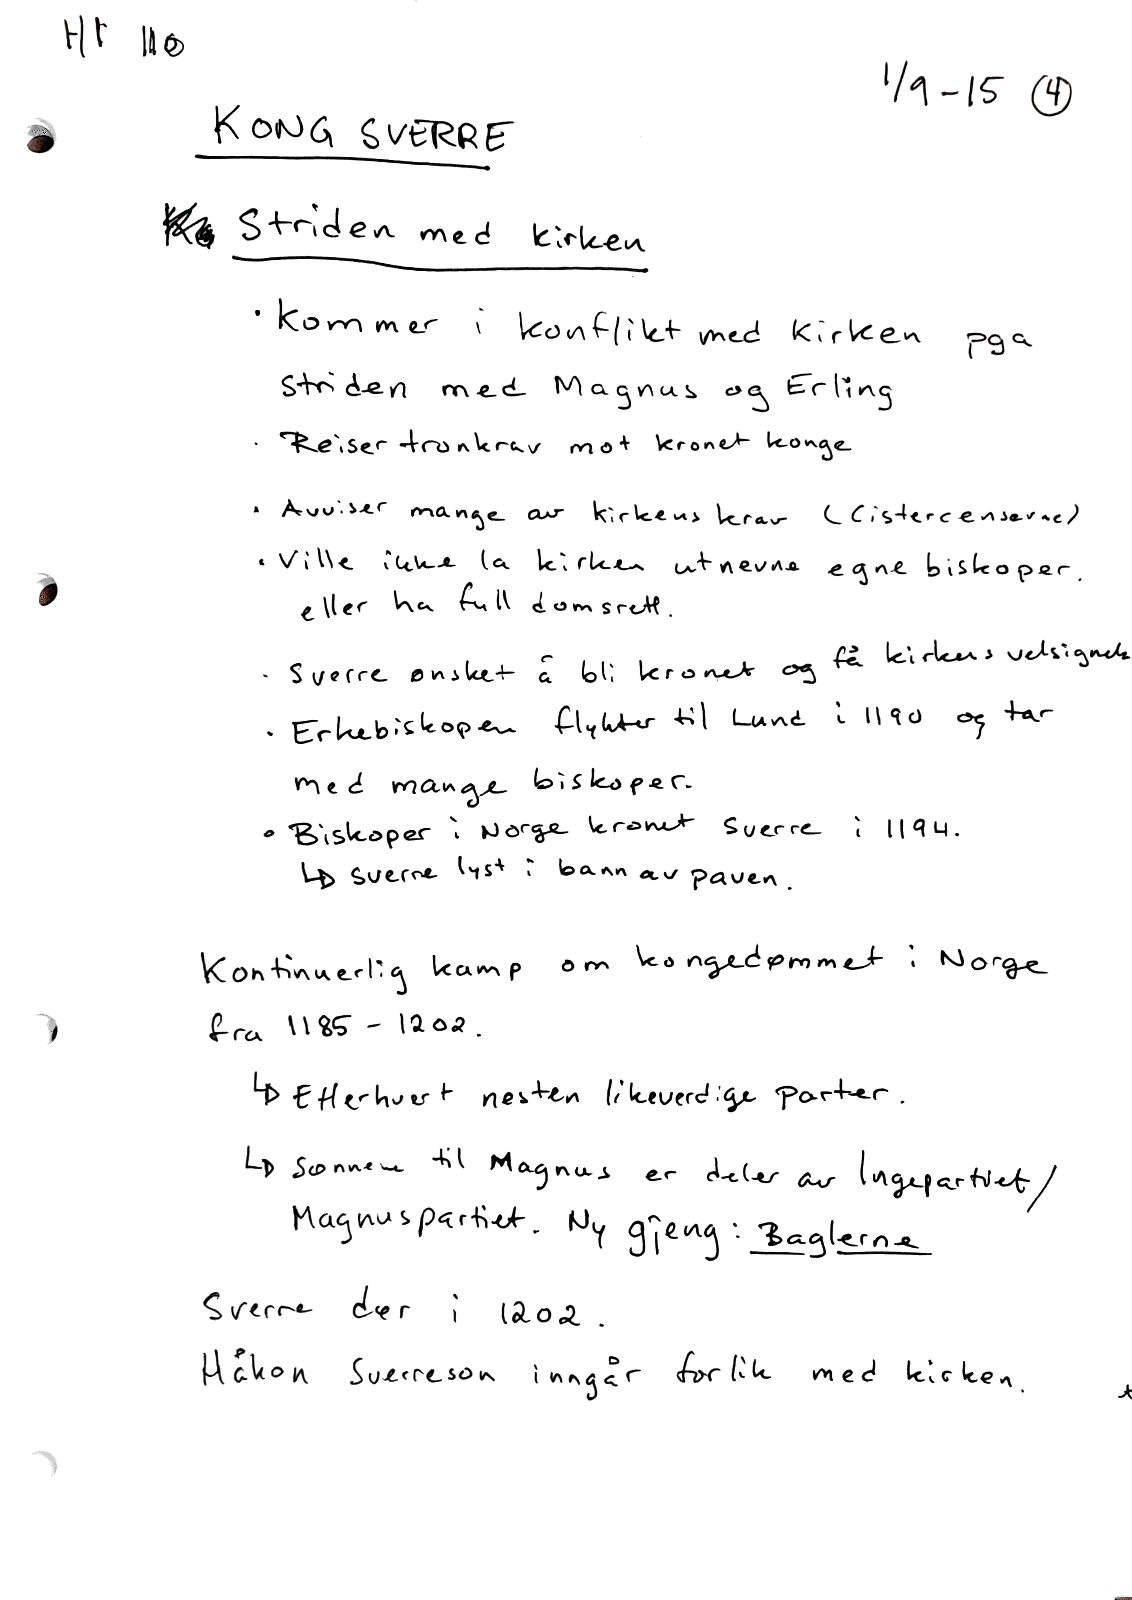 HI 110
1/9-15 (4)
KONG SVERRE
Striden med kirken
· Kommer i konflikt med kirken pga
striden med Magnus og Erling
· Reiser tronkrav mot kronet konge
· Avviser mange av kirkens krav (Cistercenserne)
· Ville ikke la kirken utnevne egne biskoper.
eller ha full domsrett.
· Sverre ønsket å bli kronet og få kirkens velsignelse
· Erkebiskopen flykter til Lund i 1190 og tar
med mange biskoper.
· Biskoper i Norge kronet Sverre i 1194.
↳ Sverre lyst i bann av paven.
Kontinuerlig kamp om kongedømmet i Norge
fra 1185 - 1202.
↳ Etterhvert nesten likeverdige parter.
↳ Sønnene til Magnus er deler av Ingepartiet/
Magnuspartiet. Ny gjeng: Baglerne
Sverre dør i 1202.
Håkon Sverreson inngår forlik med kirken.